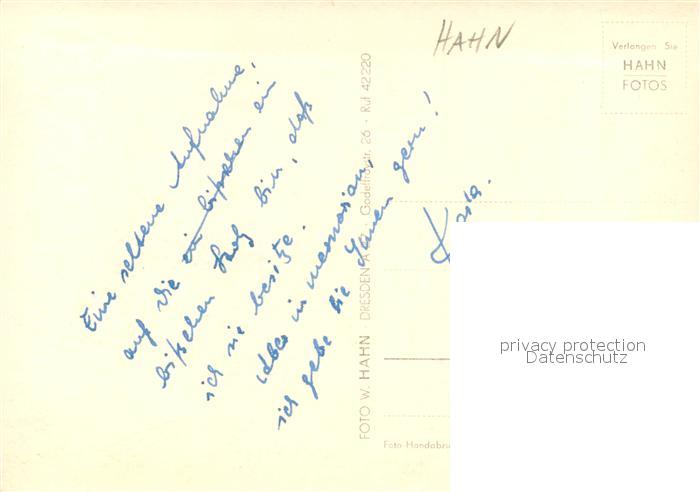 HAHN
Verlangen Sie
HAHN
FOTOS
Eine seltene Aufnahme,
auf die ein bißchen ein
bißchen stolz bin, daß
ich sie besitze.
in memoriam,
ich gebe sie Ihnen gern!
FOTO W. HAHN DRESDEN A 27 · 26 · Ruf 42220
Foto Handabzu
privacy protection
Datenschutz